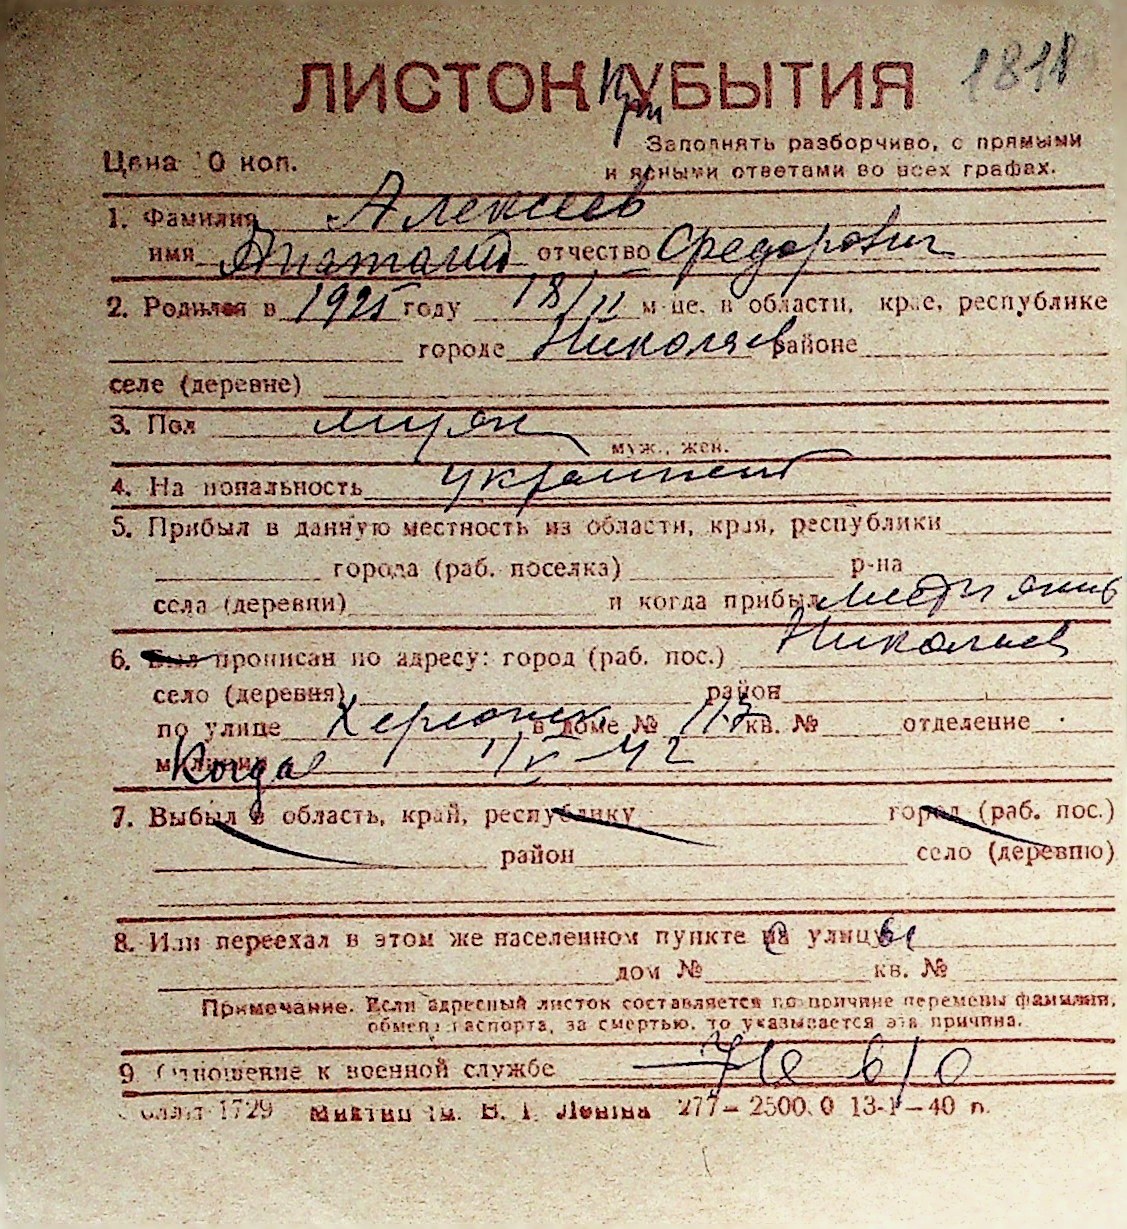 1818
ЛИСТОК УБЫТИЯ
При
Цена 10 коп.
Заполнять разборчиво, с прямыми
и ясными ответами во всех графах.
1. Фамилия Алексеев
имя Анатолий отчество Федорович
2. Родился в 1925 году 18/II м-це, в области, крае, республике
городе Николаев районе
селе (деревне)
3. Пол муж
муж., жен.
4. Национальность украинец
5. Прибыл в данную местность из области, края, республики
города (раб. поселка) р-на
села (деревни) и когда прибыл местн житель
6. Был прописан по адресу: город (раб. пос.) Николаев
село (деревня) район
по улице Херсонск в доме № 113 кв. № отделение
милиции Когда 11/V-42
7. Выбыл в область, край, республику город (раб. пос.)
район село (деревню)
8. Или переехал в этом же населенном пункте на улицу
дом № кв. №
Примечание. Если адресный листок составляется по причине перемены фамилии,
обмена паспорта, за смертью, то указывается эта причина.
9. Отношение к военной службе не в/о
1729 им. В. И. Ленина 277—2500.0 13-I—40 п.